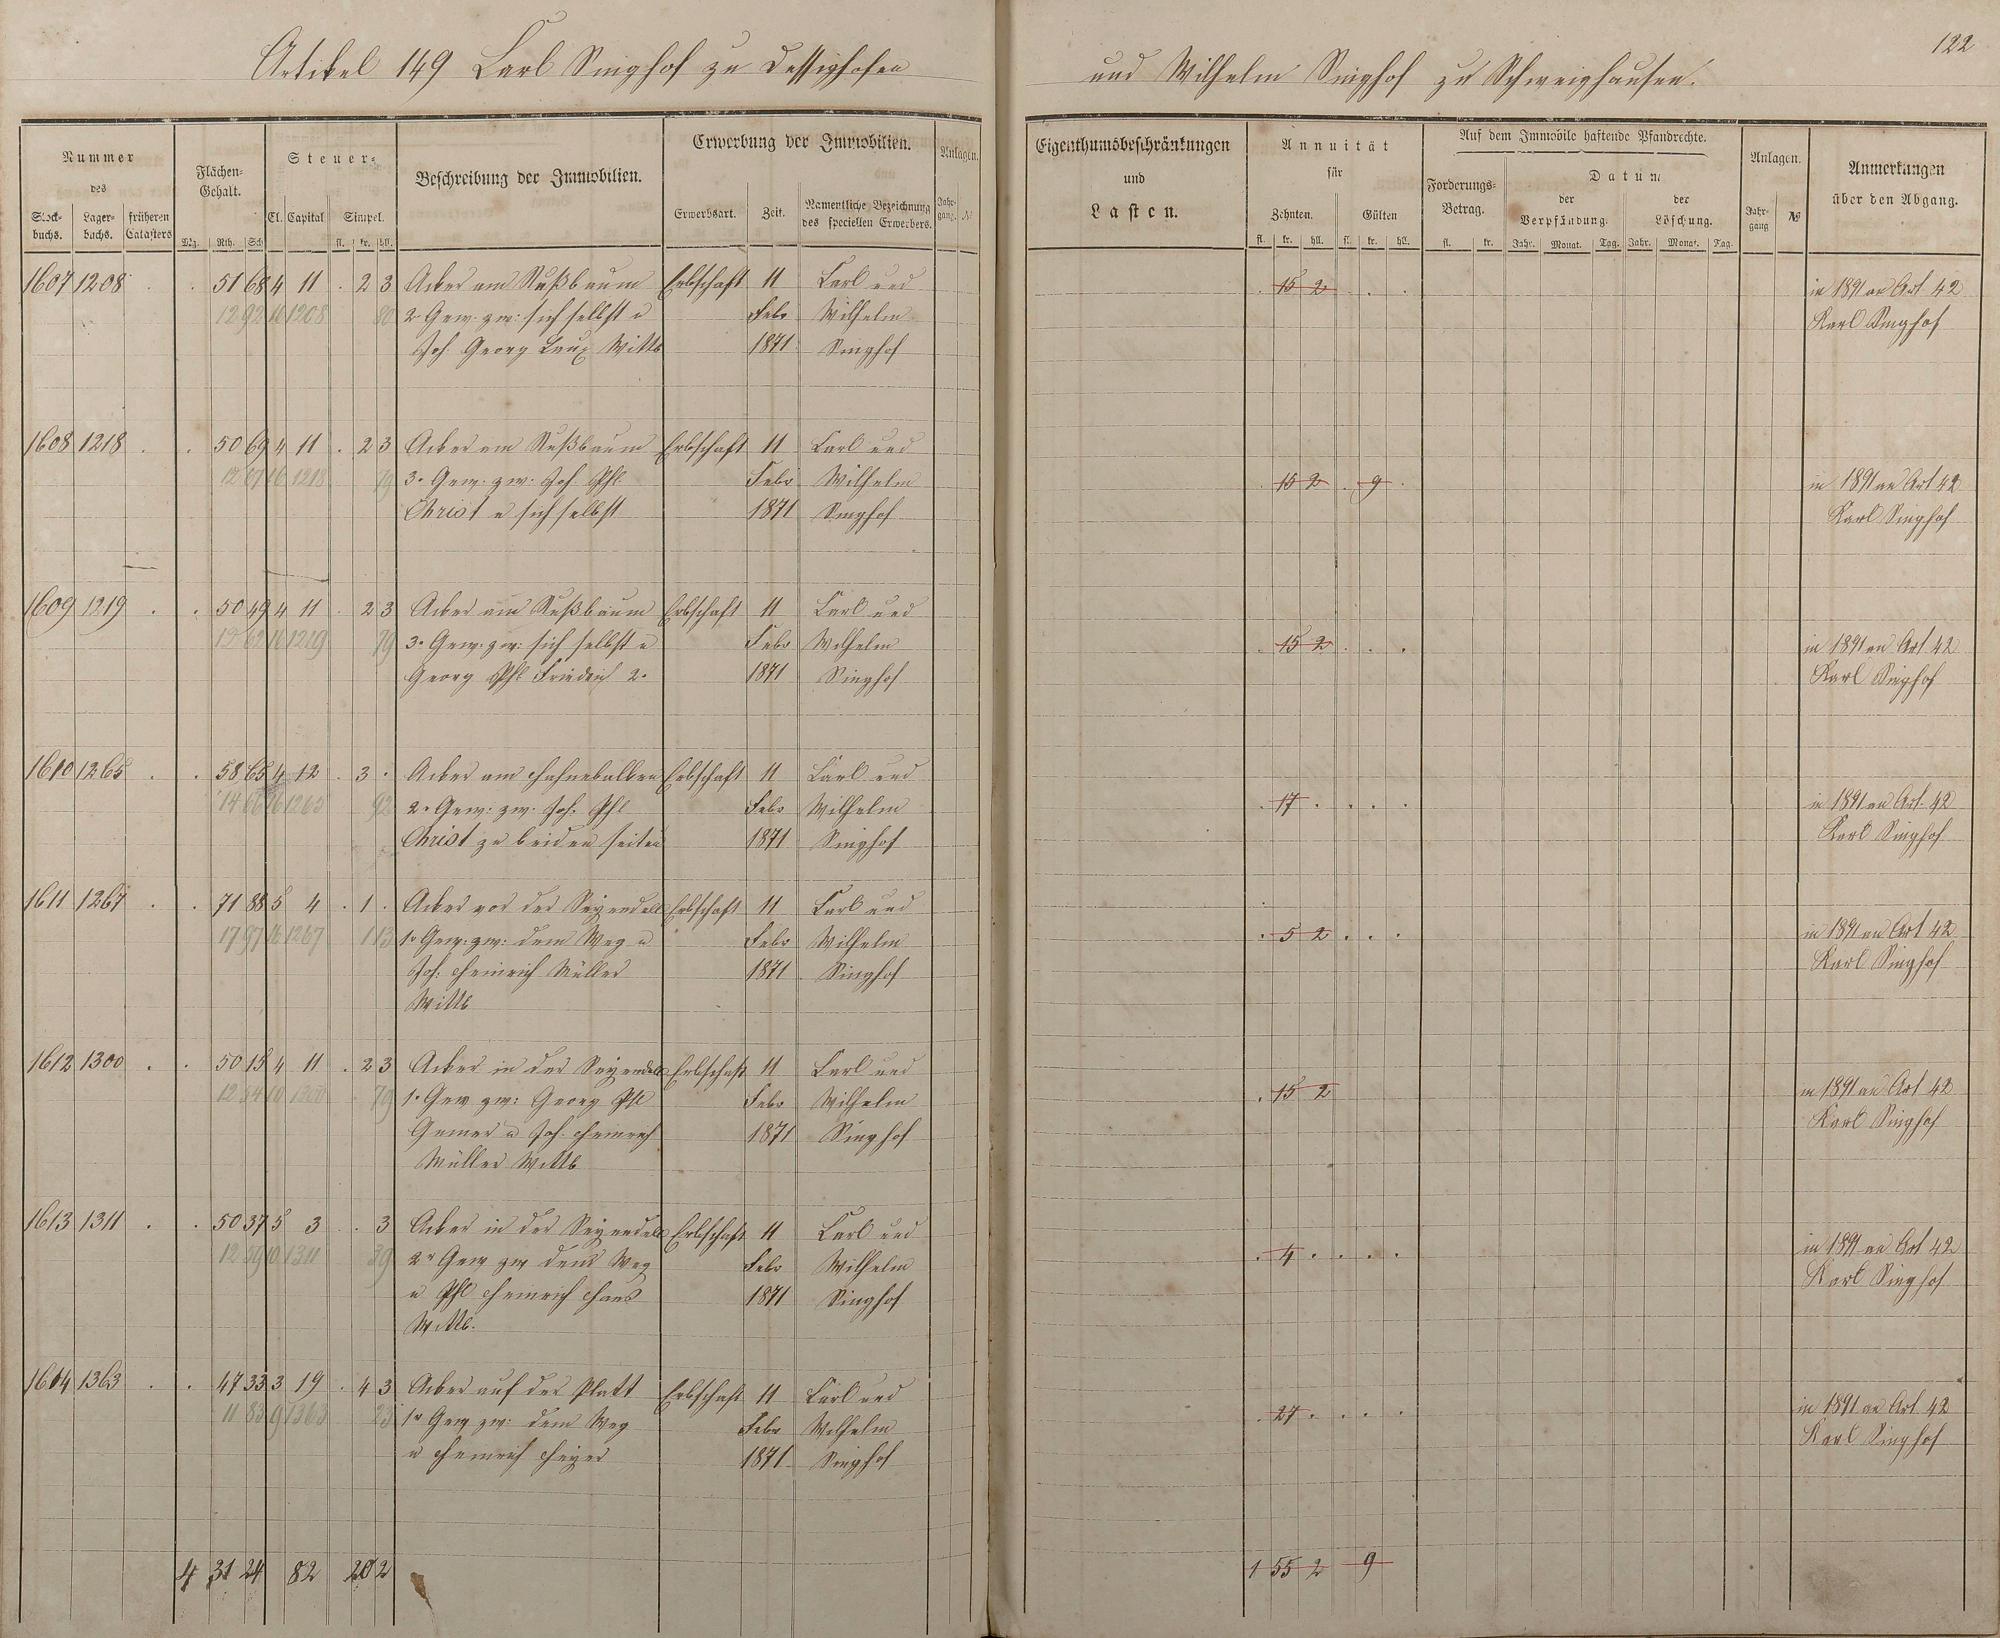 122
Artikel 149 Carl Singhof zu Dessighofen und Wilhelm Singhof zu Schweighausen.
Nummer des
Stock-buchs. Lager-buchs. früheren Catasters
Flächen-Gehalt.
Mg. Rth. Sch
Steuer-
Cl. Capital Simpel.
fl. kr. hll.
Beschreibung der Immobilien.
Erwerbung der Immobilien.
Erwerbsart. Zeit. Namentliche Bezeichnung des speciellen Erwerbers.
Anlagen.
Jahr-gang. №
Eigenthumsbeschränkungen
und
Lasten.
Annuität
für
Zehnten. Gülten
fl. kr. hll. fl. kr. hll.
Auf dem Immobile haftende Pfandrechte.
Forderungs-Betrag.
fl. kr.
Datum
der Verpfändung. der Löschung.
Jahr. Monat. Tag. Jahr. Monat. Tag.
Anlagen.
Jahr-gang №
Anmerkungen
über den Abgang.
1607 1208 . . 51 68 4 11 . 2 3 Acker am Nußbaum Erbschaft 11 Carl und . 15 2 . . . in 1891 an Art 42
12 92 16 1208 80 2r Gew. zw: sich selbst u Febr Wilhelm Karl Singhof
Joh. Georg Laux Wittb 1871 Singhof
1608 1218 . . 50 69 4 11 . 2 3 Acker am Nußbaum Erbschaft 11 Carl und
12 67 16 1218 79 3r Gew. zw. Joh. Phl Febr Wilhelm . 15 2 . 9 . in 1891 an Art 42
Christ u sich selbst 1871 Singhof Karl Singhof
1609 1219 . . 50 49 4 11 . 2 3 Acker am Nußbaum Erbschaft 11 Carl und
12 62 16 1219 79 3r Gew. zw: sich selbst u Febr Wilhelm . 15 2 . . . in 1891 an Art 42
Georg Phl Friedrich 2r 1871 Singhof Karl Singhof
1610 1265 . . 58 65 4 12 . 3 . Acker am Erbschaft 11 Carl und
14 66 16 1265 92 2r Gew: zw. Joh. Phl Febr Wilhelm . 17 . . . . in 1891 an Art. 42
Christ zu beiden seiten 1871 Singhof Karl Singhof
1611 1267 . . 71 88 5 4 . 1 . Acker vor der Seyendell Erbschaft 11 Carl und
17 97 16 1267 1 13 1r Gew: zw: dem Weg u Febr Wilhelm . 5 2 . . . in 1891 an Art 42
Joh: Heinrich Müller 1871 Singhof Karl Singhof
Wittb
1612 1300 . . 50 15 4 11 . 2 3 Acker in der Seyendell Erbschaft 11 Carl und
12 54 10 1300 79 1r Gew zw: Georg Phl Febr Wilhelm . 15 2 in 1891 an Art 42
u Joh. Heinrich 1871 Singhof Karl Singhof
Müller Wittb
1613 1311 . . 50 37 5 3 . . 3 Acker in der Seyendell Erbschaft 11 Carl und
12 59 10 1311 39 2r Gew zw dem Weg Febr Wilhelm . 4 . . . . in 1891 an Art 42
u Phl Heinrich 1871 Singhof Karl Singhof
Wittb.
1614 1363 . . 47 33 3 19 . 4 3 Acker auf der Platt Erbschaft 11 Carl und
11 83 9 1363 23 1r Gew zw: dem Weg Febr Wilhelm . 27 . . . . in 1891 an Art. 42
u Heinrich 1871 Singhof Karl Singhof
4 31 24 82 20 2 1 55 2 9